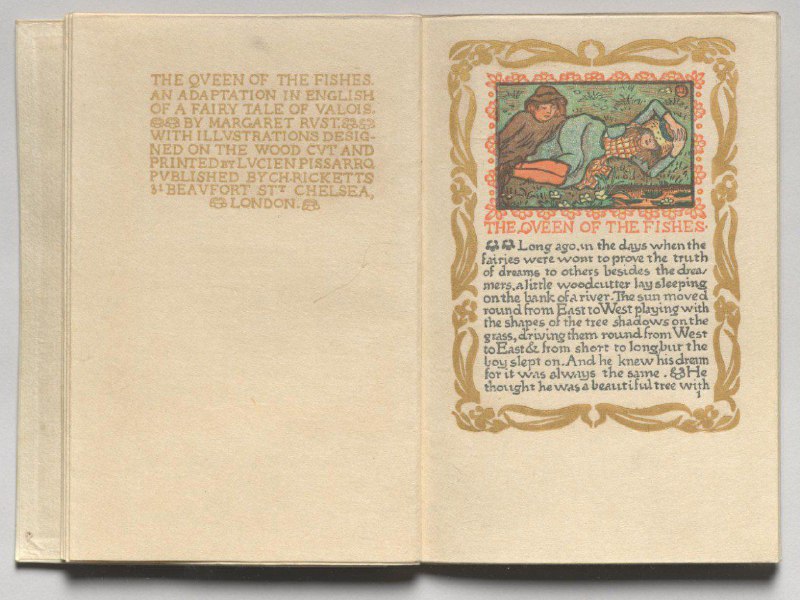 THE QVEEN OF THE FISHES.
AN ADAPTATION IN ENGLISH
OF A FAIRY TALE OF VALOIS.
BY MARGARET RVST,
WITH ILLVSTRATIONS DESIG-
NED ON THE WOOD CVT AND
PRINTED BY LVCIEN PISSARRO.
PVBLISHED BY CH. RICKETTS
31 BEAVFORT STT CHELSEA,
LONDON.
THE QVEEN OF THE FISHES.
Long ago, in the days when the
fairies were wont to prove the truth
of dreams to others besides the drea-
mers, a little woodcutter lay sleeping
on the bank of a river. The sun moved
round from East to West playing with
the shapes of the tree shadows on the
grass, driving them round from West
to East & from short to long, but the
boy slept on. And he knew his dream
for it was always the same. He
thought he was a beautiful tree with
1